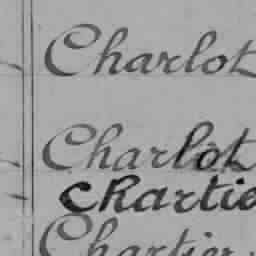 Charlot
Charlot
Chartie
Chartier